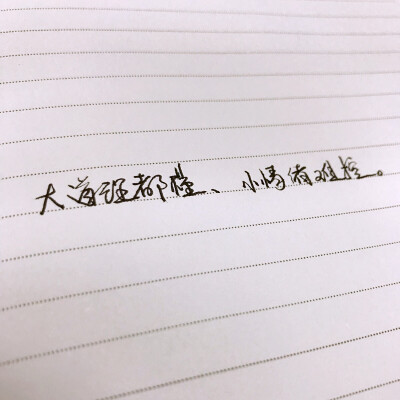 大道理都懂、小情绪难控。